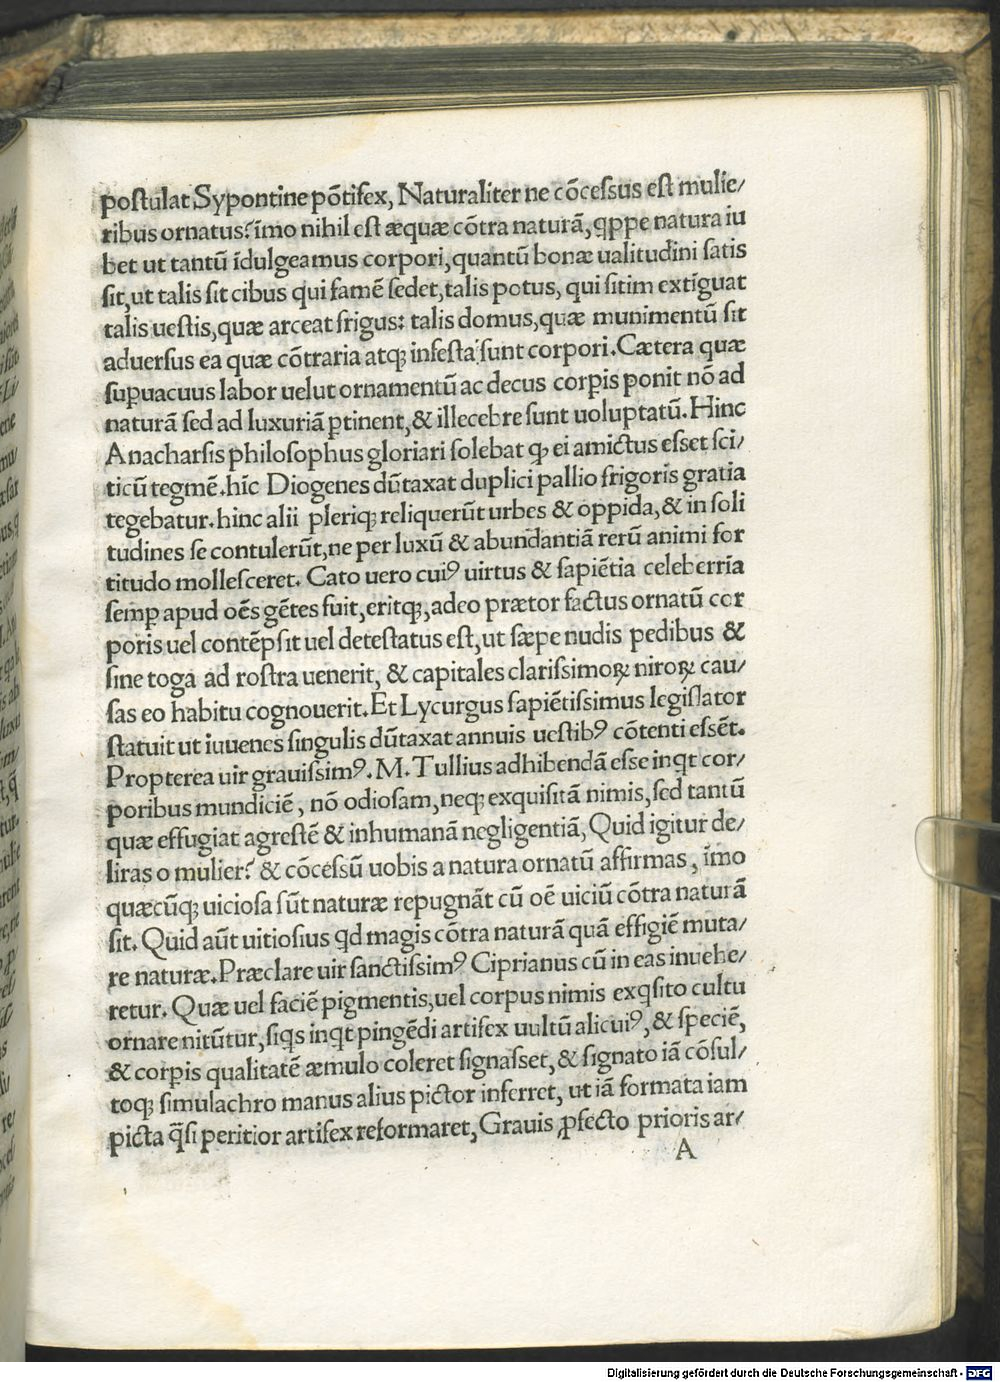 postulat Sypontine põtifex, Naturaliter ne cõcessus est mulie/
ribus ornatus? ĩmo nihil est æquæ cõtra naturã, qppe natura iu
bet ut tantũ ĩdulgeamus corpori, quantũ bonæ ualitudini satis
sit, ut talis sit cibus qui famẽ sedet, talis potus, qui sitim extĩguat
talis uestis, quæ arceat frigus: talis domus, quæ munimentũ sit
aduersus ea quæ cõtraria atqꝫ infesta sunt corpori. Cætera quæ
suꝑuacuus labor uelut ornamentũ ac decus corꝑis ponit nõ ad
naturã sed ad luxuriã ꝑtinent, & illecebre sunt uoluptatũ. Hinc
Anacharsis philosophus gloriari solebat ꝙ ei amictus esset sci/
ticũ tegmẽ. hĩc Diogenes dũtaxat duplici pallio frigoris gratia
tegebatur. hinc alii pleriqꝫ reliquerũt urbes & oppida, & in soli
tudines se contulerũt, ne per luxũ & abundantiã rerũ animi for
titudo mollesceret. Cato uero cuiꝰ uirtus & sapiẽtia celeberria
semꝑ apud oẽs gẽtes fuit, eritqꝫ, adeo prætor factus ornatũ cor
poris uel contẽpsit uel detestatus est, ut sæpe nudis pedibus &
sine toga ad rostra uenerit, & capitales clarissimoꝝ niroꝝ cau/
sas eo habitu cognouerit. Et Lycurgus sapiẽtissimus legislator
statuit ut iuuenes singulis dũtaxat annuis uestibꝰ cõtenti essẽt.
Propterea uir grauissimꝰ. M. Tullius adhibendã esse inqt cor/
poribus mundiciẽ, nõ odiosam, neqꝫ exquisitã nimis, sed tantũ
quæ effugiat agrestẽ & inhumanã negligentiã, Quid igitur de/
liras o mulier? & cõcessũ uobis a natura ornatũ affirmas, ĩmo
quæcũqꝫ uiciosa sũt naturæ repugnãt cũ oẽ uiciũ cõtra naturã
sit. Quid aũt uitiosius qd magis cõtra naturã quã effigiẽ muta/
re naturæ. Præclare uir sanctissimꝰ Ciprianus cũ in eas inuehe/
retur. Quæ uel faciẽ pigmentis, uel corpus nimis exqsito cultu
ornare nitũtur, siqs inqt pingẽdi artifex uultũ alicuiꝰ, & speciẽ,
& corꝑis qualitatẽ æmulo colore signasset, & signato iã cõsul/
toqꝫ simulachro manus alius pictor inferret, ut iã formata iam
picta q̃si peritior artifex reformaret, Grauis ꝓfecto prioris ar/
A
Digitalisierung gefördert durch die Deutsche Forschungsgemeinschaft - DFG